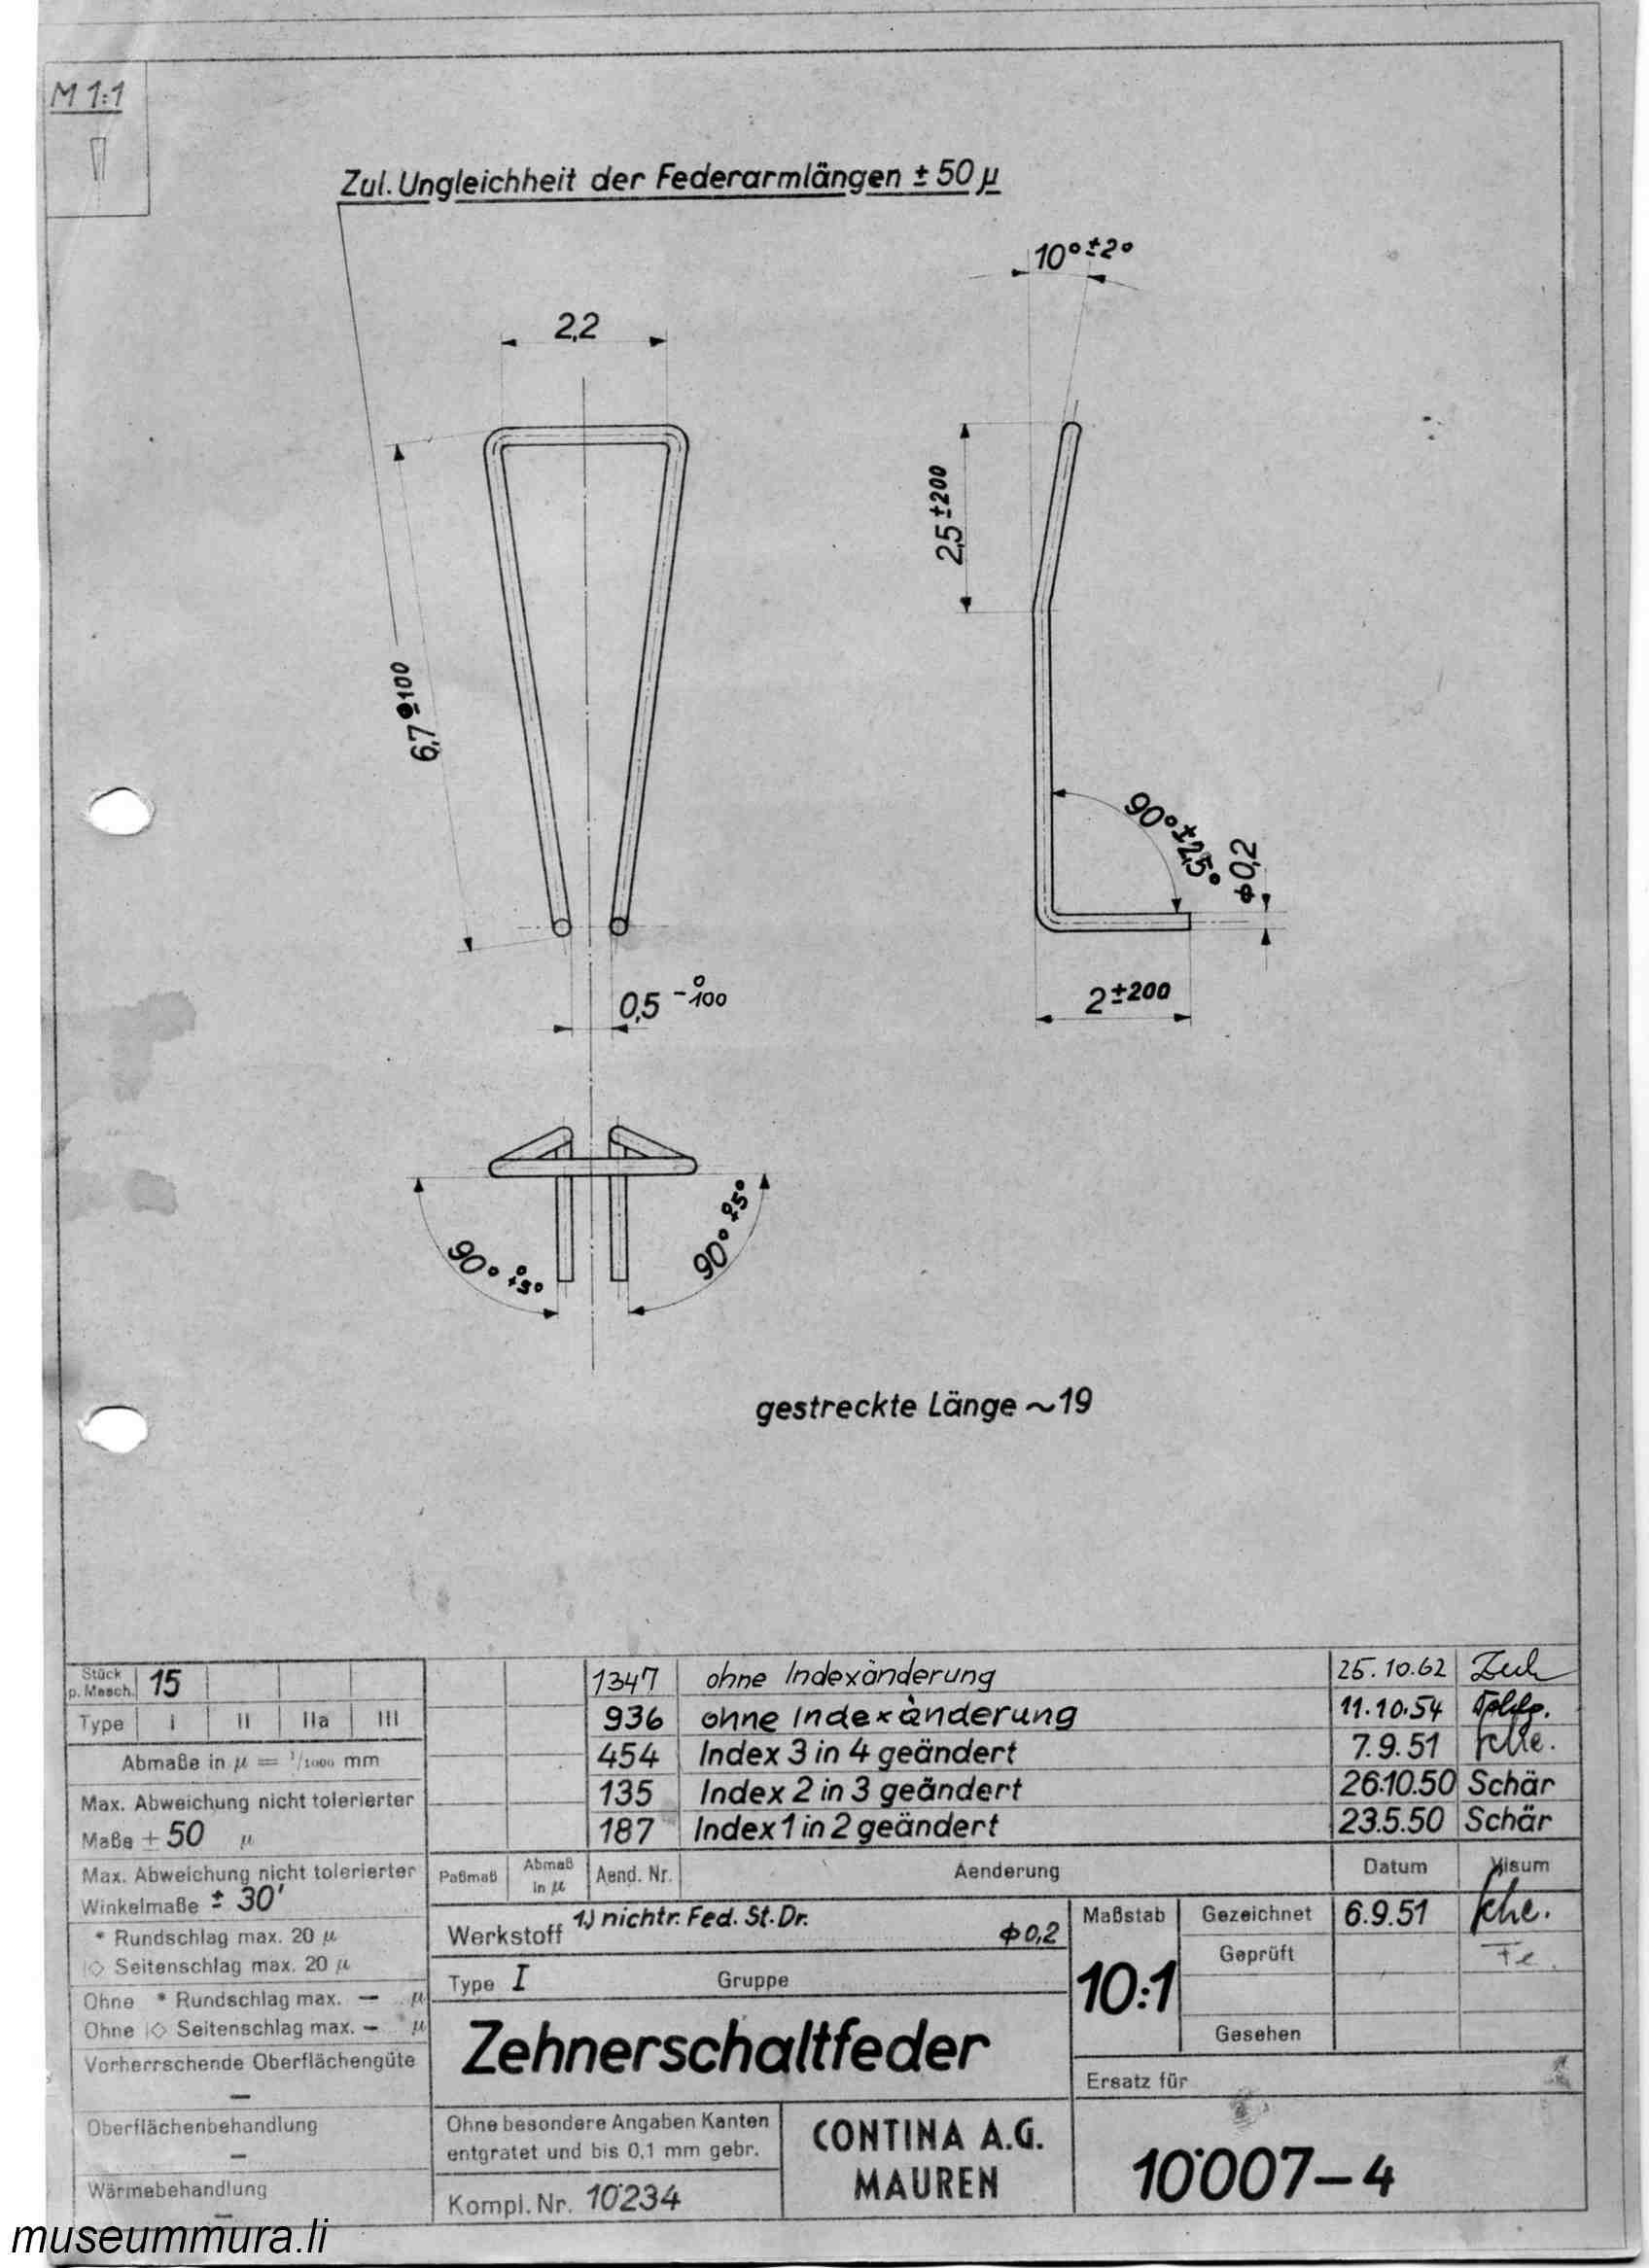 M 1:1
Zul. Ungleichheit der Federarmlängen ± 50 µ
10° ±2°
2,2
2,5 ±200
6,7 ±100
90° ±2,5°
ϕ 0,2
0,5 - 0/100
2 ±200
90° 0/+5°
90° 0/+5°
gestreckte Länge ~19
Stück p. Masch. 15
Type I II IIa III
Abmaße in µ = 1/1000 mm
Max. Abweichung nicht tolerierter
Maße ± 50 µ
Max. Abweichung nicht tolerierter
Winkelmaße ± 30'
* Rundschlag max. 20 µ
◇ Seitenschlag max. 20 µ
Ohne * Rundschlag max. – µ
Ohne ◇ Seitenschlag max. – µ
Vorherrschende Oberflächengüte
–
Oberflächenbehandlung
–
Wärmebehandlung
–
1347 ohne Indexänderung 25.10.62
936 ohne Indexänderung 11.10.54
454 Index 3 in 4 geändert 7.9.51
135 Index 2 in 3 geändert 26.10.50 Schär
187 Index 1 in 2 geändert 23.5.50 Schär
Paßmaß Abmaß in µ Aend. Nr. Aenderung Datum Visum
Werkstoff 1.) nichtr. Fed. St. Dr. ϕ 0,2
Type I Gruppe
Zehnerschaltfeder
Maßstab
10:1
Gezeichnet 6.9.51
Geprüft Fe.
Gesehen
Ersatz für
Ohne besondere Angaben Kanten
entgratet und bis 0,1 mm gebr.
Kompl. Nr. 10˙234
CONTINA A.G.
MAUREN
10˙007–4
museummura.li